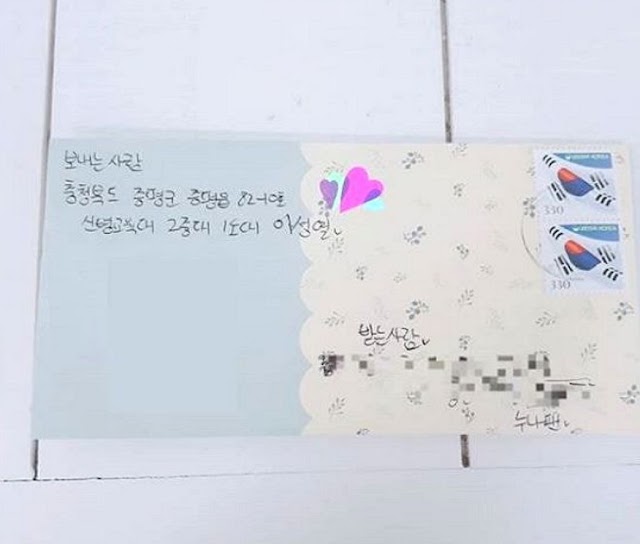 보내는 사람
충청북도 증평군 증평읍 82-10호
신병교육대 2중대 1소대 이성열
KOREA
330
KOREA
330
받는사람
누나팬